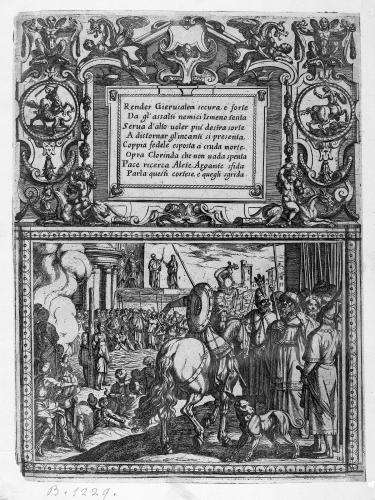 Render Gierusalem secura, e forte
Da gl'assalti nemici Ismeno tenta
Serua d'alto uoler piú destra sorte
A distornar gl'incanti si presenta.
Coppia fedele esposta a cruda morte
Opra Clorinda che non uada spenta
Pace ricerca Alete, Argante sfida
Parla questi cortese, e quegli sgrida
B. 1229.